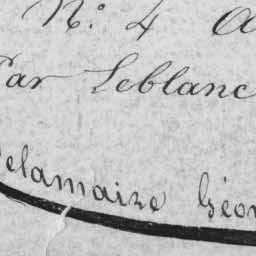 N.º 4
Par Leblanc
Delamaire Géor